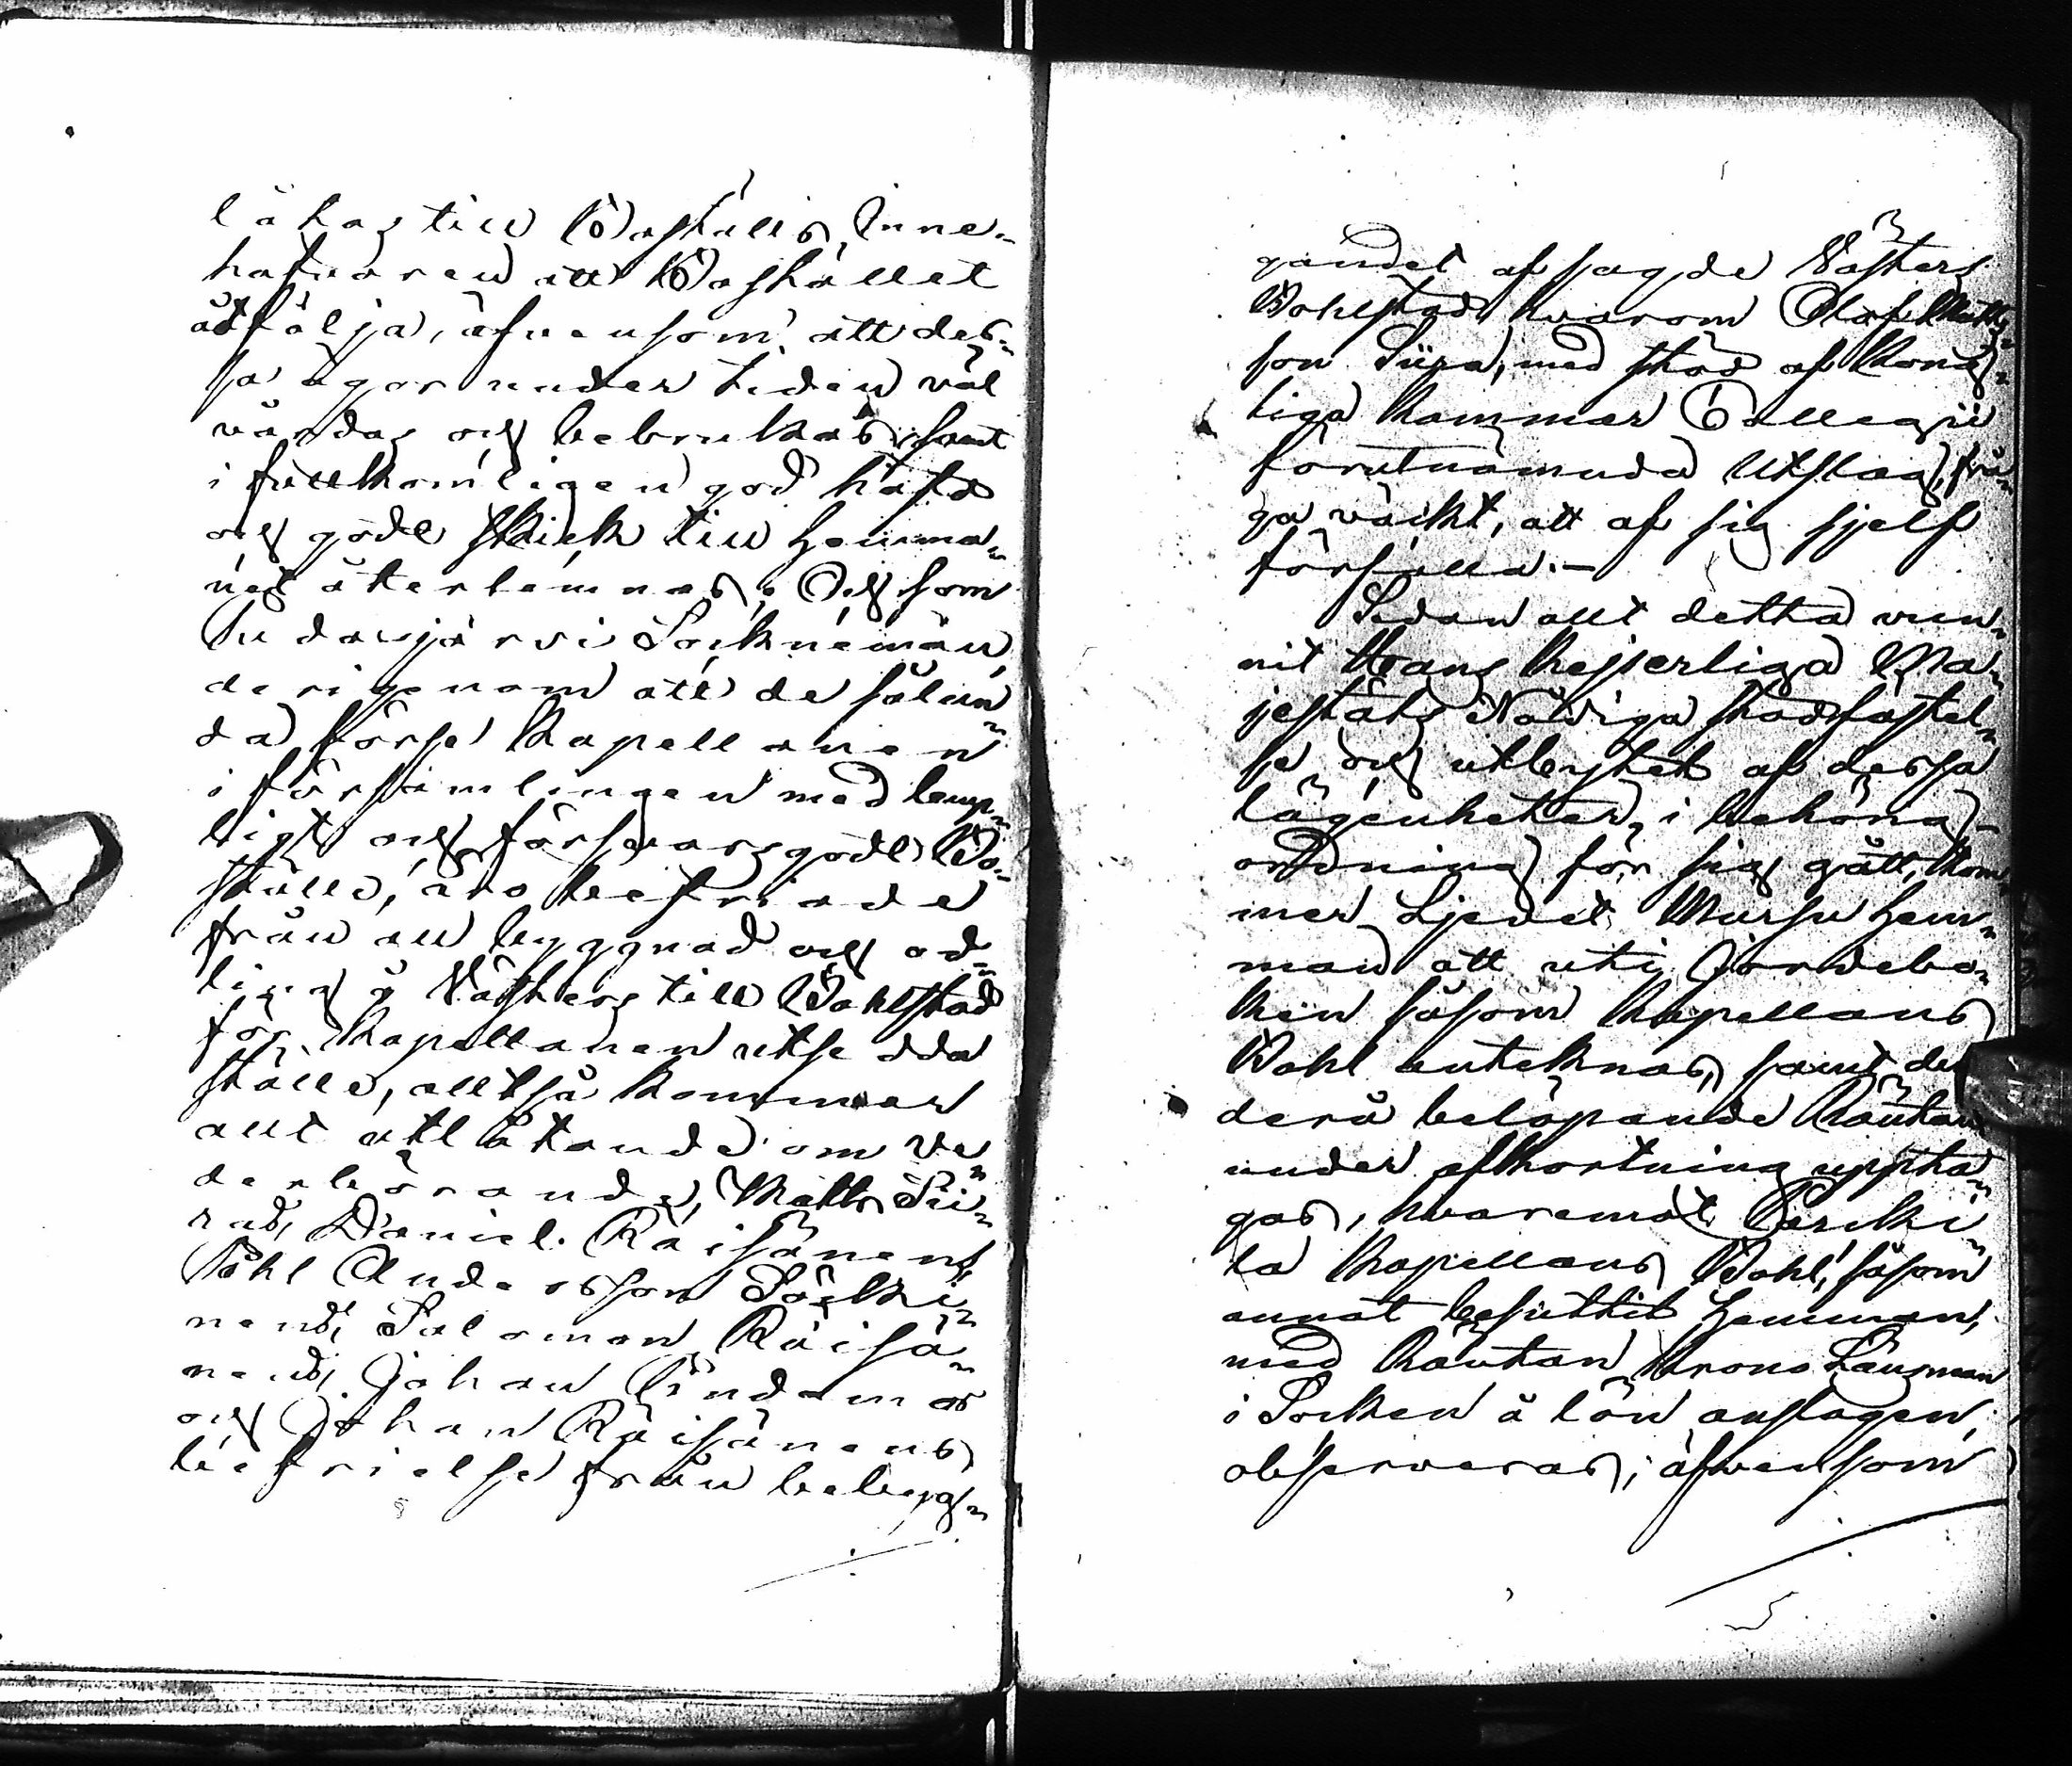 låtas till Boställs Inne-
hafvaren att Bostället
åtfölja, äfvensom att des-
sa ägor under tiden väl
vårdas och bebrukas, samt
i fullkomligen god häfd
och godt skick till Hemma-
net återlemnas; Och som
Pudasjärvi Socknemän,
derigenom att de sålun-
da förse Kapellanen
i församlingen med lämp-
ligt och försvarsgodt Bo-
ställe, äro befriade
från all byggnad och od-
ling å Våsters till Bohlstad
för Kapellanen utsedda
ställe, alltså kommer
allt utlåtande om ve-
derbörande, Matts Sii-
ras, Daniel Räisänens,
Påhl Andersson Särki-
nens, Salomon Räisä-
nens, Johan Lindamos
och Johan Räisänens
befrielse från bebygg-
gandet af sagde Våsters
Bohlstad, hvarom Olof Matts-
son Siira, med stöd af Kong-
liga Kammar Collegii
förutnämnda Utslag, frå-
ga väckt, att af sig sjelf
förfalla.-
Sedan allt detta vun-
nit Hans Kejserliga Ma-
jestäts Nådiga stadfästel-
se och utbytet af dessa
lägenheter, i behörig
ordning för sig gått, kom-
mer Ljedet Mursu Hem-
man att uti Jordebo-
ken såsom Kapellans
Bohl antecknas, samt den
derå belöpande Räntan
under afkortning uppta-
gas, hvaremot
ta Kapellans Bohl, såsom
annat besuttit Hemman,
med Räntan Krono Länsman
i Socken å lön anslagen,
observeras; äfvensom